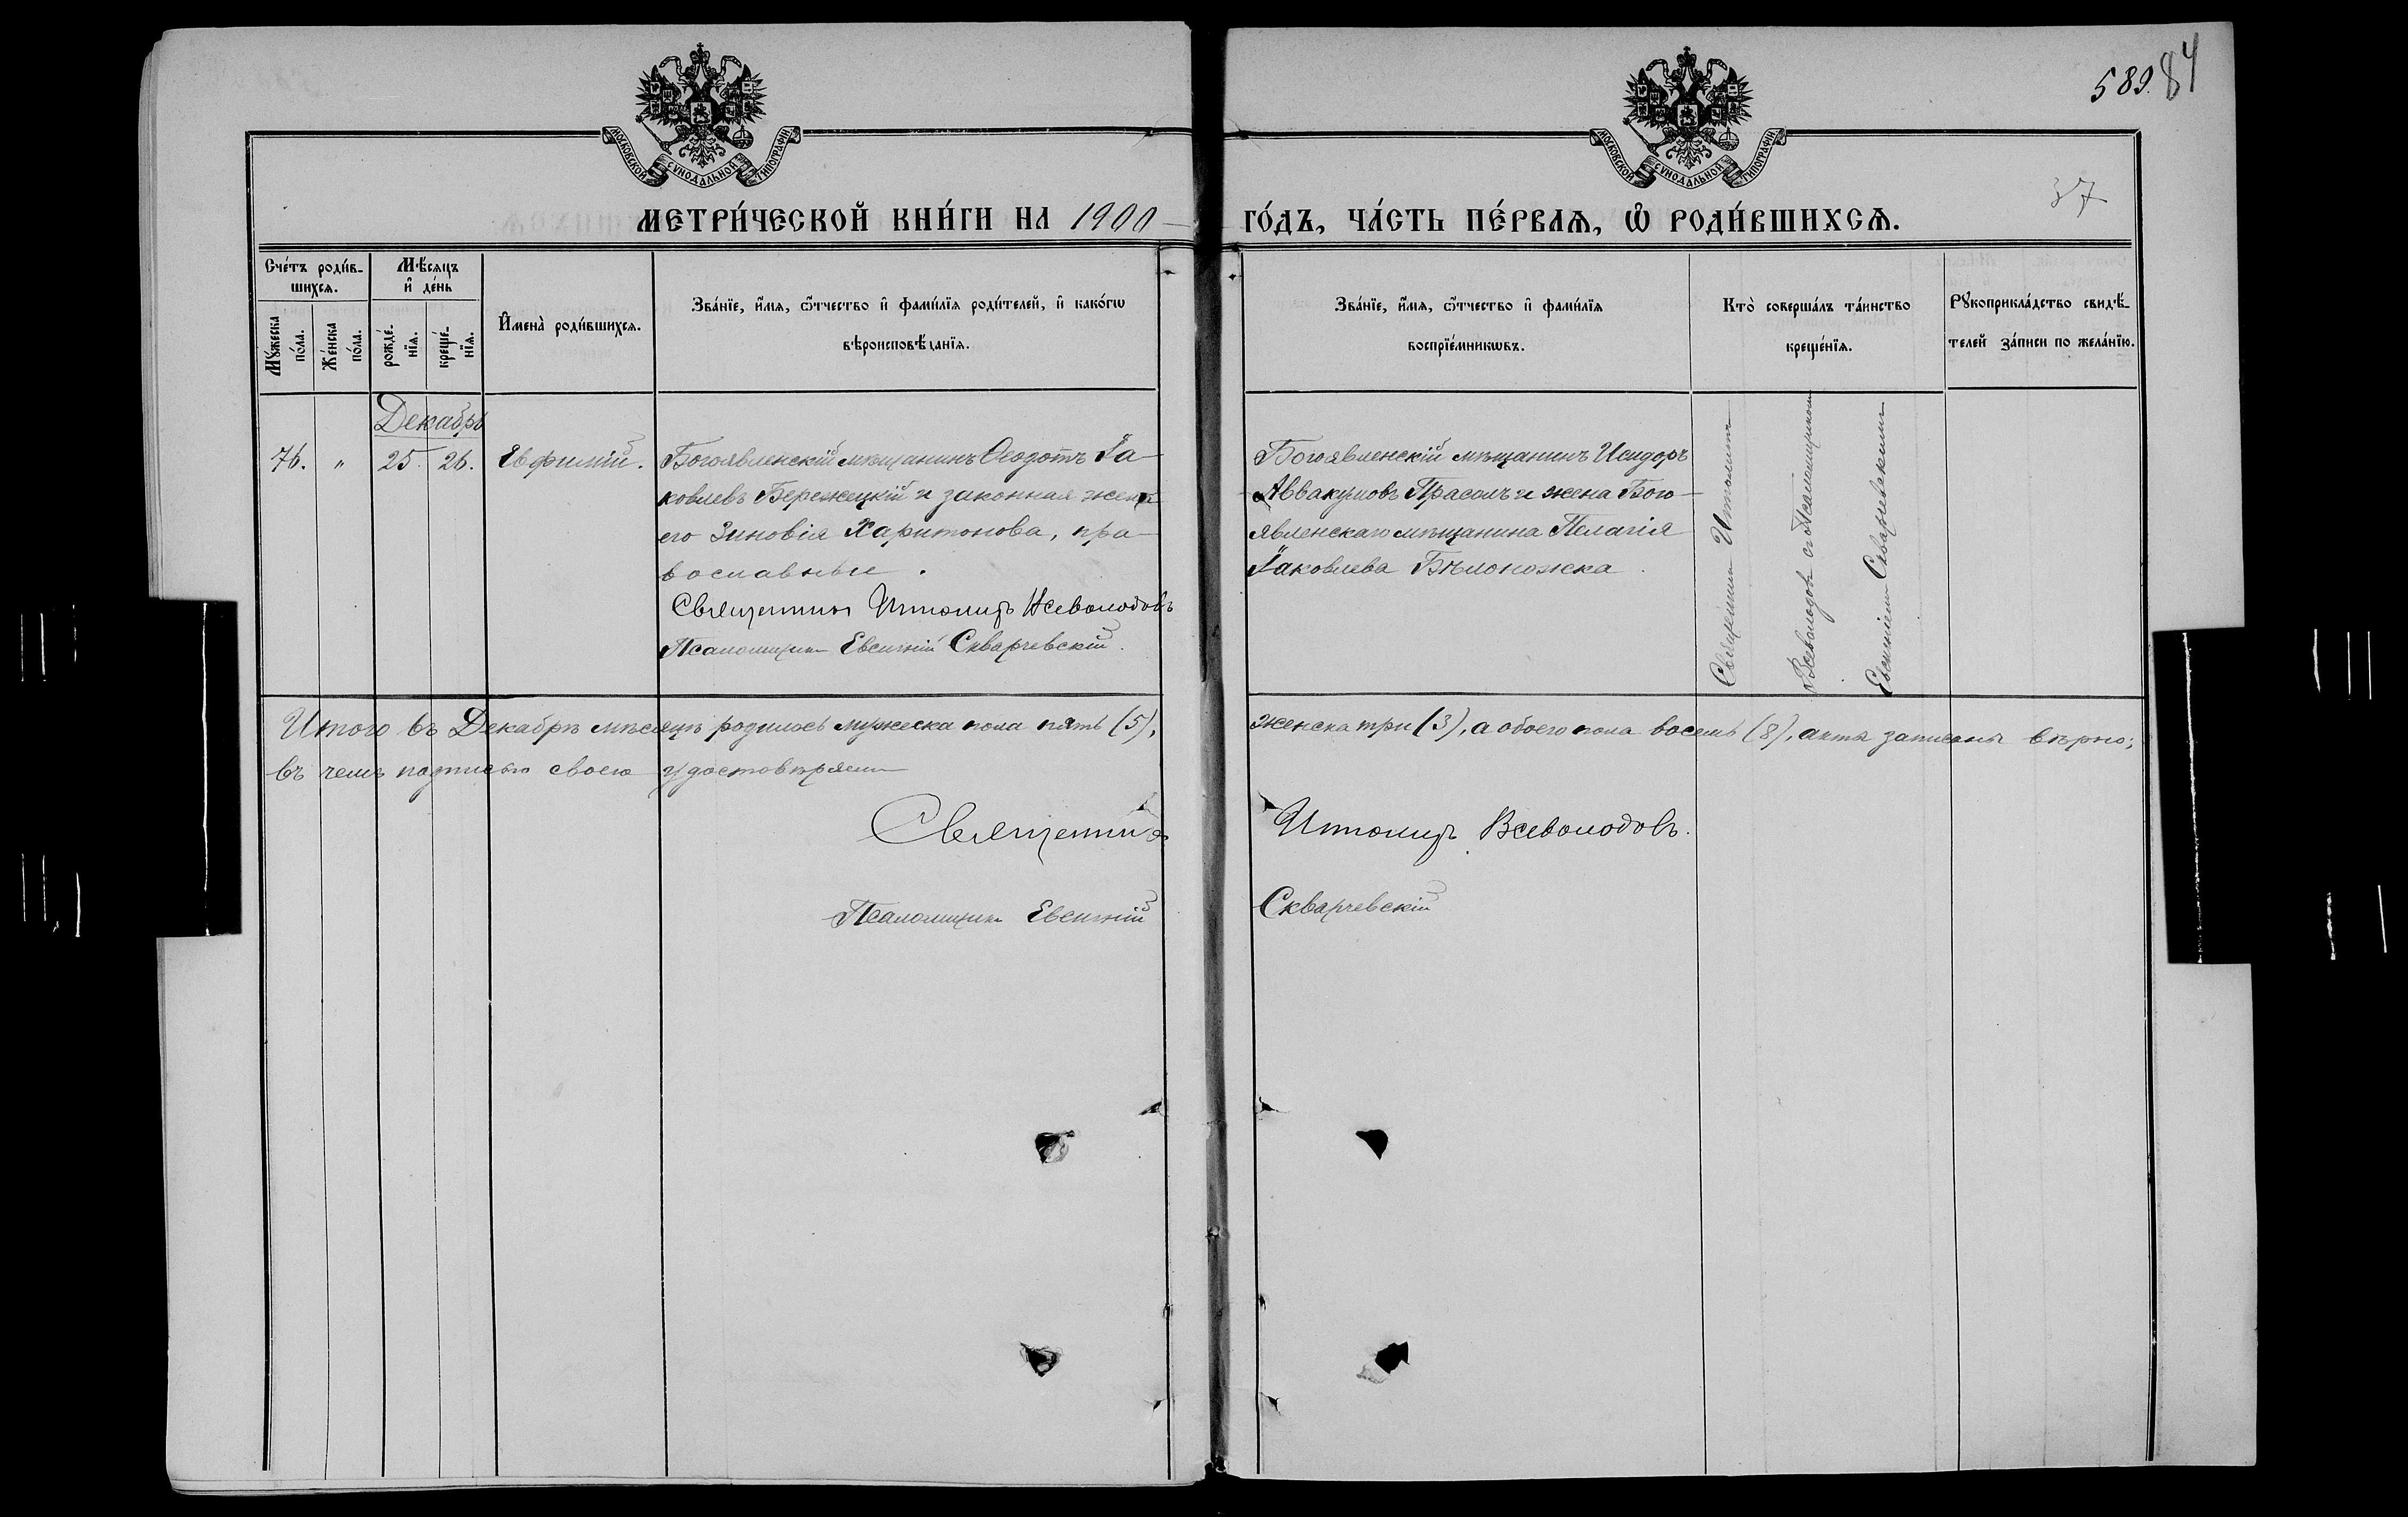 589. 84
МОСКОВСКОЙ СѴНОДАЛЬНОЙ ТИПОГРАФІИ
МОСКОВСКОЙ СѴНОДАЛЬНОЙ ТИПОГРАФІИ
37
МЕТРИ́ЧЕСКОЙ КНИ́ГИ НА 1900 ГО́ДЪ, ЧА́СТЬ ПЕ́РВАѦ, Ѡ҆ РОДИ́ВШИХСѦ.
Сче́тъ роди́в-
шихсѧ.
Мꙋ́жеска по́ла.
Же́нска по́ла.
Мѣ́сѧцъ и҆ де́нь
рожде́-нїѧ.
креще́-нїѧ.
И҆мена̀ роди́вшихсѧ.
Зва́нїе, и҆́мѧ, ѻ҆́тчество и҆ фами́лїѧ роди́телей, и҆ како́гѡ
вѣроисповѣ́данїѧ.
Зва́нїе, и҆́мѧ, ѻ҆́тчество и҆ фами́лїѧ
воспрїе́мникѡвъ.
Кто̀ соверша́лъ та́инство
креще́нїѧ.
Рꙋкоприкла́дство свидѣ́-
телей за́писи по жела́нїю.
Декабрь
76. „ 25. 26. Евфимій.
Богоявленскій мѣщанинъ Ѳеодотъ Іа-
ковлевъ Бережецкій и законная жена
его Зиновія Харитонова, пра-
вославные.
Священникъ Всеволодовъ
Псаломщикъ Евгеній Скварчевскій.
Богоявленскій мѣщанинъ Исидоръ
Аввакумовъ Прасолъ и жена Бого-
явленскаго мѣщанина Пелагія
Іаковлева Бѣлоножка
Священникъ
Всеволодовъ съ Псаломщикомъ
Евгеніемъ Скварчевскимъ
Итого въ Декабрѣ мѣсяцѣ родилось мужеска пола пять (5), женска три (3), а обоего пола восемь (8), акты записаны вѣрно;
въ чемъ подписью своею удостовѣряемъ
Священникъ Всеволодовъ.
Псаломщикъ Евгеній Скварчевскій